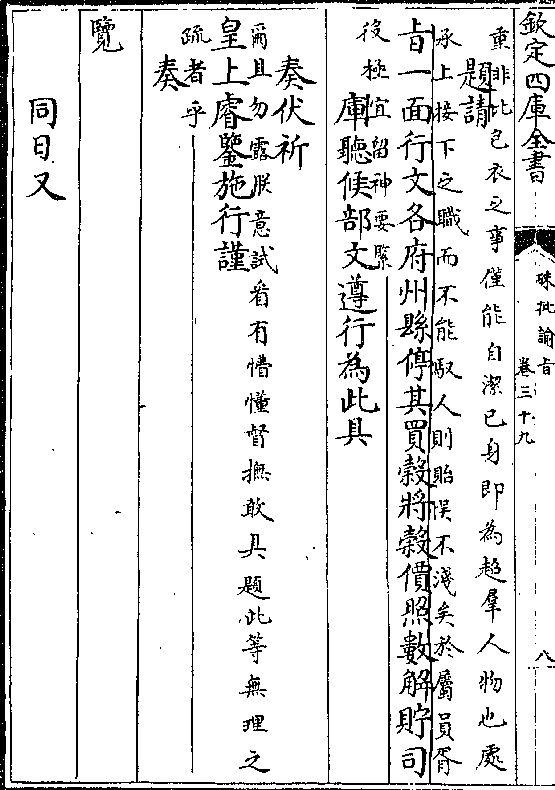 欽定四庫全書
硃批諭旨
卷三十九
八
重非比包衣之事僅能自潔己身即為超羣人物也處
題請
承上接下之職而不能馭人則貽悞不淺矣於屬員胥
旨一面行文各府州縣停其買穀將穀價照數解貯司
役極宜留神要緊
庫聽候部文遵行為此具
奏伏祈
爾且勿露朕意試看有懵懂督撫敢具題此等無理之
皇上睿鑒施行謹
疏者乎
奏
覽
同日又